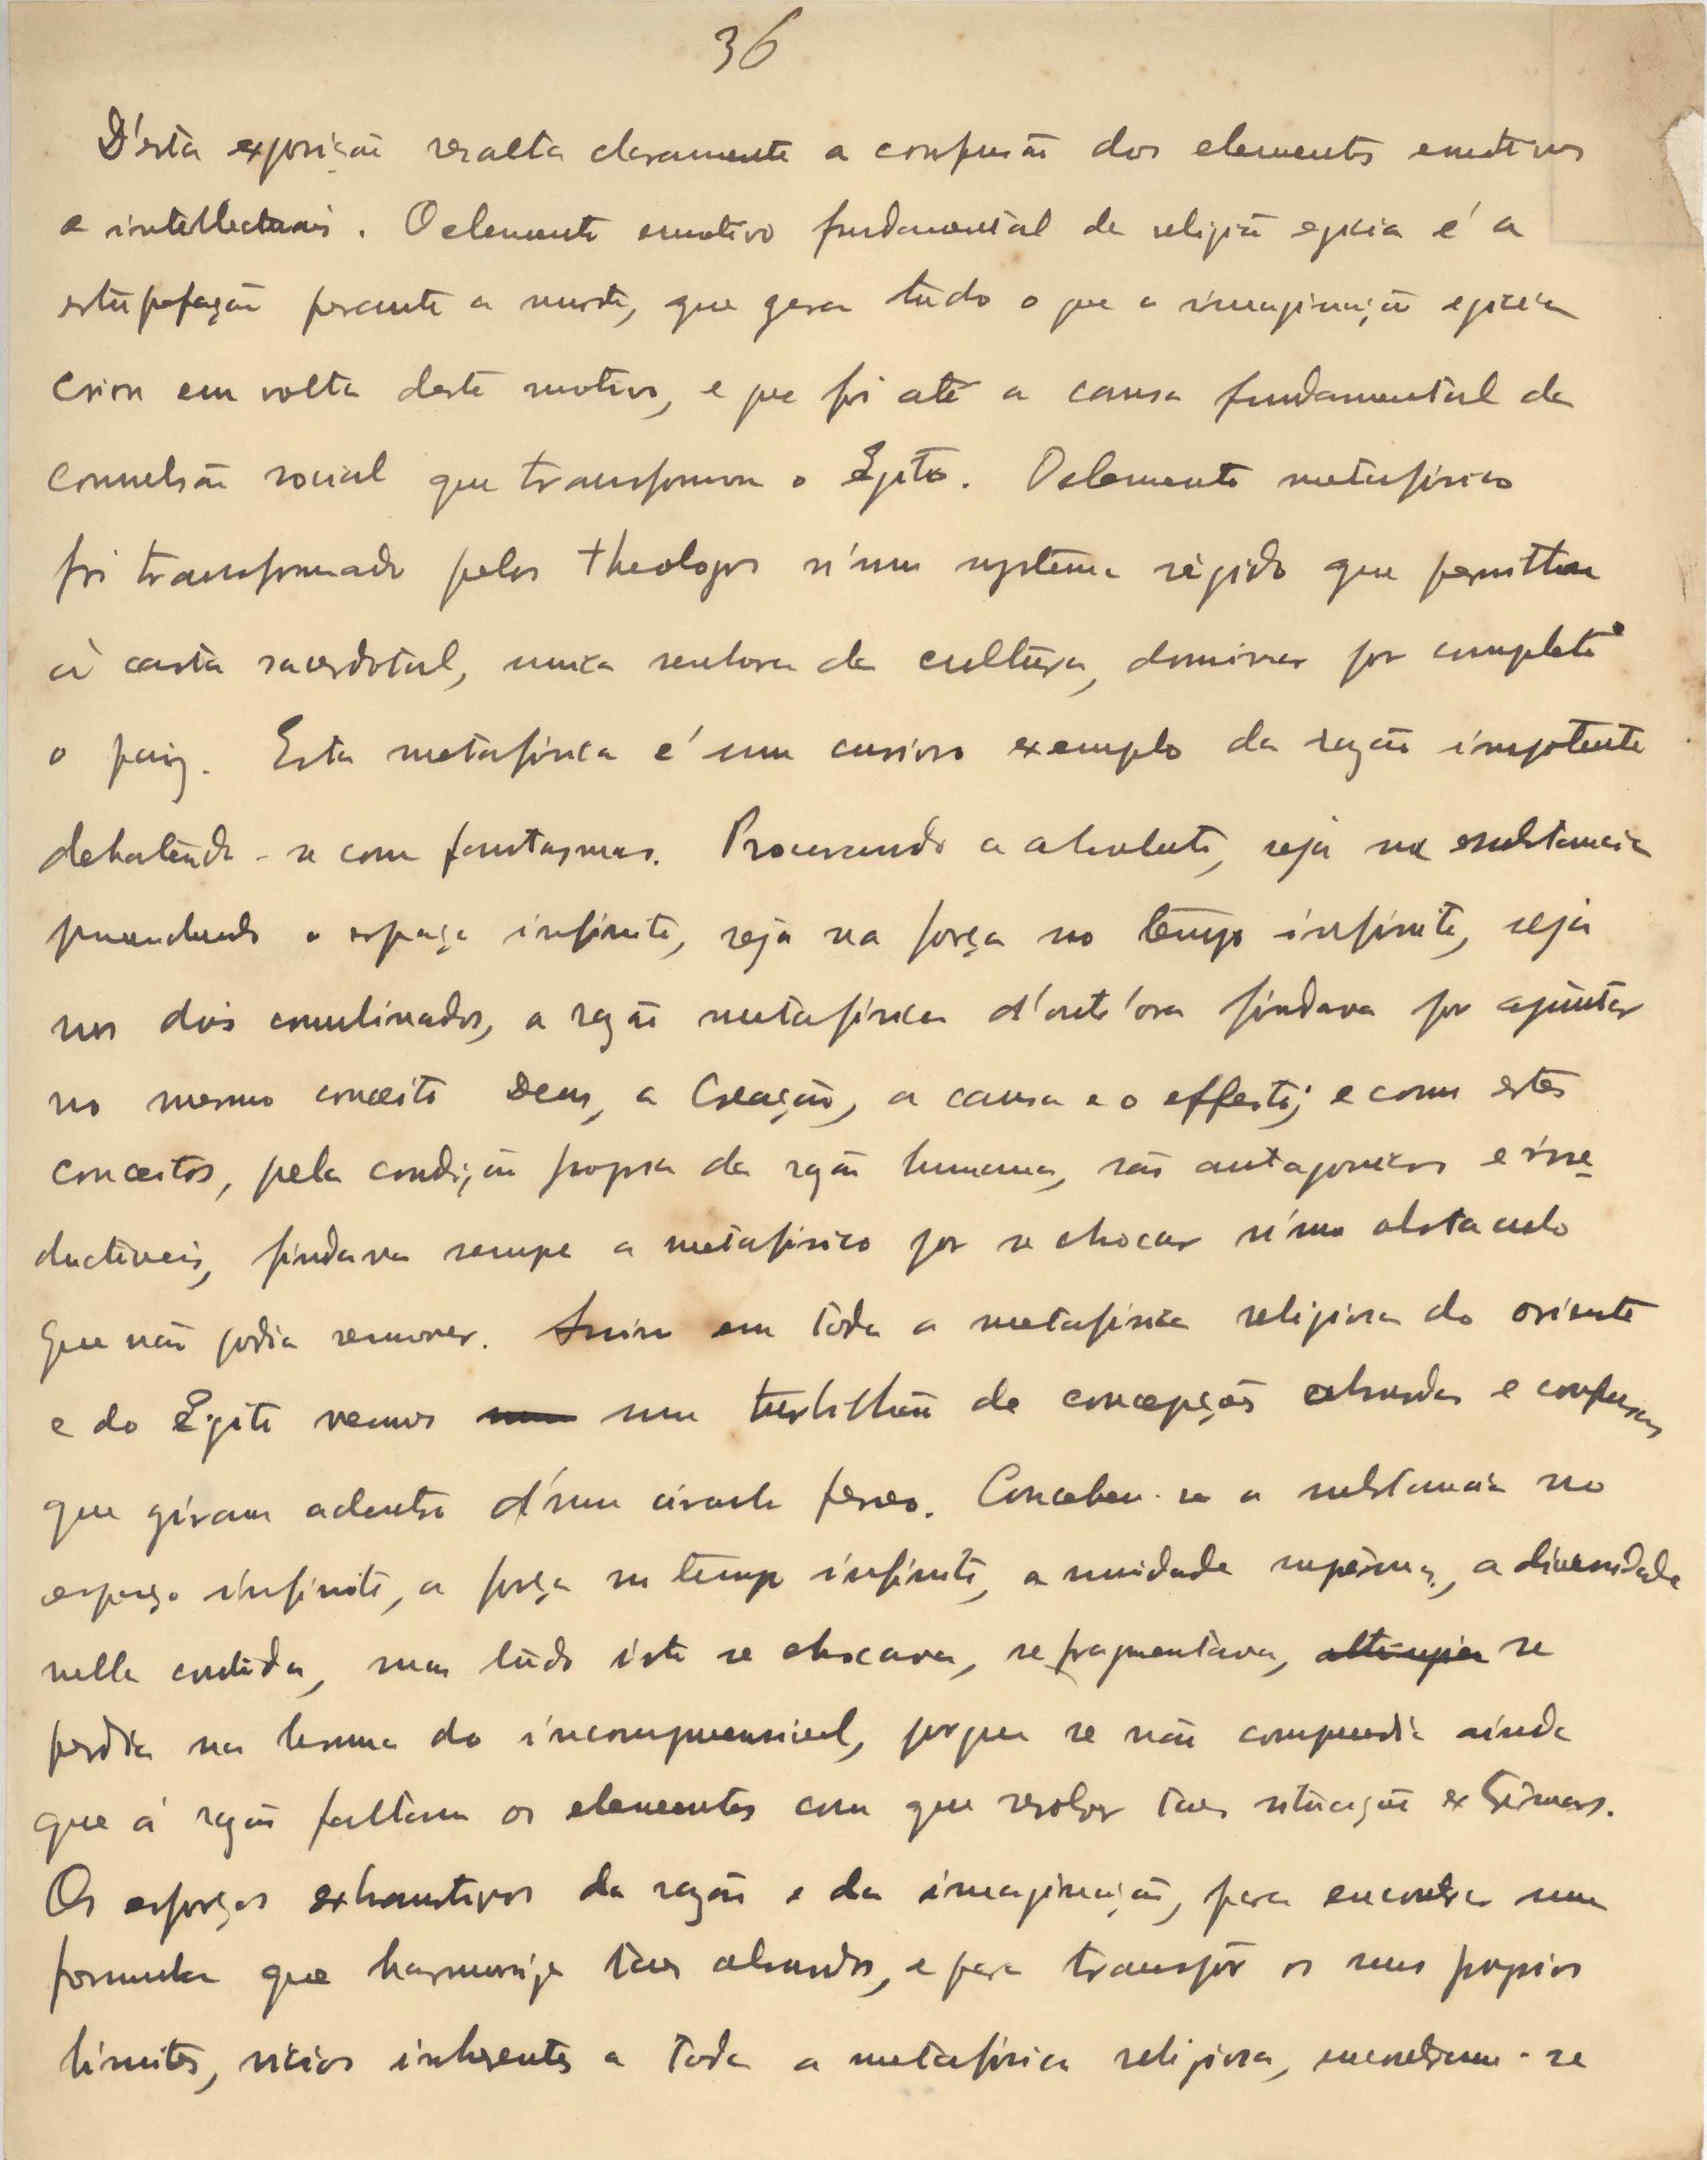 36
D'esta exposição resalta claramente a confusão dos elementos emotivos
e intellectuais. O elemento emotivo fundamental da religião egicia é a
estupefação perante a morte, que gera tudo o que a imaginação egicia
criou em volta deste motivo, e que foi até a causa fundamental da
convulsão social que transformou o Egito. O elemento metafisico
foi transformado pelos theologos n'um systema rigido que permittiu
á casta sacerdotal, unica senhora da cultura, dominar por completo
o paiz. Esta metafisica é um curioso exemplo da razão impotente
debatendo-se com fantasmas. Procurando o absoluto, seja na substancia
prehenchendo o espaço infinito, seja na força no tempo infinito, seja
nos dois combinados, a razão metafisica d'outr'ora findava por ajuntar
no mesmo conceito Deus, a Creação, a causa e o effeito; e como estes
conceitos, pela condição propria da razão humana, são antagonicos e irre-
ductiveis, findava sempre a metafisica por se chocar n'um obstaculo
que não podia remover. Assim em toda a metafisica religiosa do oriente
e do Egito vemos um turbilhão de concepções absurdas e confusas
que giram adentro d'um circulo ferreo. Concebeu-se a substancia no
espaço infinito, a força no tempo infinito, a unidade suprema, a diversidade
nella contida, mas tudo isto se chocava, se fragmentava, se
perdia na bruma do incomprensivel, porque se não comprendia ainda
que á razão faltam os elementos com que resolver taes situações extremas.
Os esforços exhaustivos da razão e da imaginação, para encontrar uma
formula que harmonize taes absurdos, e para transpôr os seus proprios
limites, vicios inherentes a toda a metafisica religiosa, encontram-se